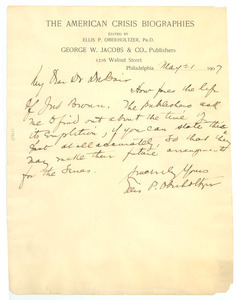 THE AMERICAN CRISIS BIOGRAPHIES
EDITED BY
ELLIS P. OBERHOLTZER, PH.D.
GEORGE W. JACOBS & CO., Publishers
1216 Walnut Street
Philadelphia May 21 1907
My Dear Dr DuBois
How goes the life
of Jno Brown. The publishers ask
me to find out about the time of
its completion, if you can state that
fact at all accurately, so that they
may make their future arrangements
for the Series.
Sincerely Yours
Ellis P. Oberholtzer